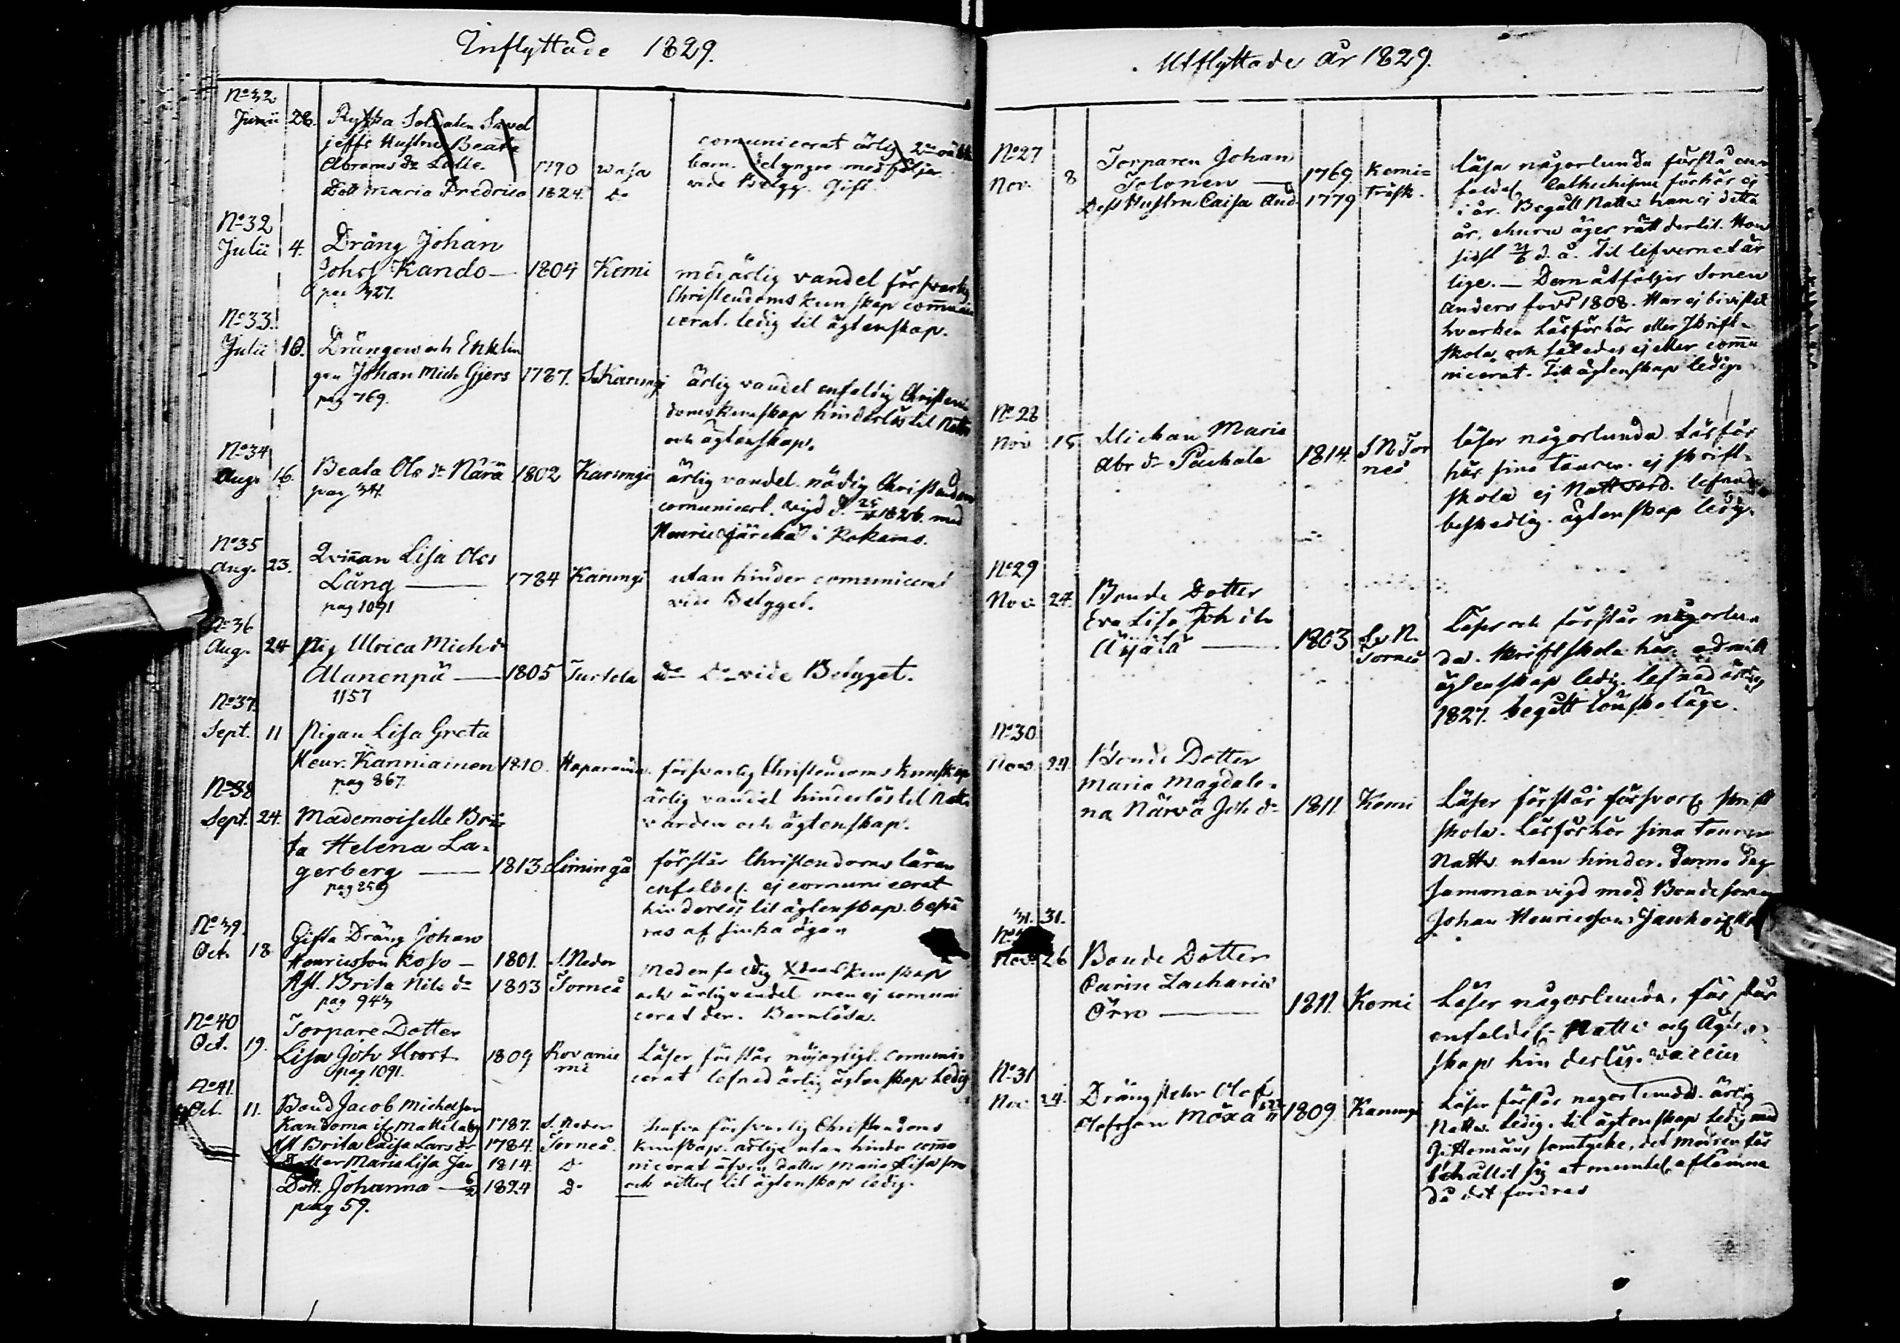 Inflyttade 1829.
No 32
Junii 28. Ryska Soldaten Savel
jeffs Hustru Beata
Abrams dr Lalle. 1790 Waja
Dott Maria Fredrica 1824. do
comunicerat ärlig
barn.
vide Betygg. Gift
No 32
Julii 4. Dräng Johan
Johs Kando — 1804 Kemi
pag 327.
med ärlig vandel försvarlig
Christendoms kunskap communi
cerat. ledig til ägtenskap.
No 33.
Julii 10. Drängen och Enklin
gen Johan Mich Gjers 1787. Karungi
pag 769.
ärlig vandel enfaldig Christen
doms kunskap hinderlös til Nattv
och ägtenskap.
No 34
Aug. 16. Beata Ols dr Närä 1802 Karungi
ärlig vandel nödig Christendom
comunicert. vigd d. 1826. med
Henric i Kokams.
No 35
Aug. 23. Qvinnan Lisa Ols
Lång — 1784 Karungi
pag 1091
utan hinder comunicerat
vide Betyget.
No 36
Aug. 24 Pig Ulrica Mich dr
Alanenpä — 1805 Turtola do do vide Betyget.
1157
No 37.
Sept. 11 Pigan Lisa Greta
Henr. Kanniainen 1810. Haparanda
pag 867.
försvarlig Christendoms kunskap
ärlig vandel hinderlös til Natt
varden och ägtenskap.
No 38
Sept. 24. Mademoiselle Bri
ta Helena La-
gerberg — 1813 Limingå
pag 259
förstår Christendoms läran
enfaldigt. ej comunicerat
hinderlös til ägtenskap. besvä
ras af sjuka ögon
No 39.
Oct. 18 Gifta Dräng Johan
Henricsson Koso — 1801. N. Neder
Hst. Brita Nils dr 1803 Torneå
pag 943
Med enfaldig Xdoms kunskap
och ärlig vandel men ej comuni
cerat der. Barnlösa.
No 40
Oct. 19. Torpare Dotter
Lisa Joh Hoort 1809 Rovanie
mi
pag 1091.
Läser förstår nöjagtigt. comuni-
cerat lefnad ärlig ägtenskap ledig
No 41.
Oct. 11. Bond Jacob Michelsson
Kandoma if. Mattila 1787. N. Neder
Hst. Brita Caisa Lars dr 1784. Torneå.
Dotter Maria Lisa Jac 1814. do
Dott. Johanna — 1824 do
pag 59.
hafva försvarlig Christendoms
kunskap. ärliga utan hinder commu
nicerat äfven dotter Maria Lisa som
och til ägtenskap ledig.
Utflyttade år 1829.
No 27
Nov. 8 Torparen Johan
Tolonen — 1769. Kemi-
träsk.
Dess Hustru Caisa And. 1779
Läsa någorlunda förstå en-
faldigt Cathechismi förhör ej
i år. Begått Nattv. han ej detta
år, ehuru äger rätt dertil. Hon
sidst d. å. Til lefvernet är
lige. — Dem åtföljer Sonen
Anders född 1808. Har ej bivistat
hvarken Läsförhör eller Skrift-
skola, och således ej eller commu
nicerat. Til ägtenskap ledig.
No 28
Nov. 15 Flickan Maria
Abr dr Packala 1814. N Tor
neå
läser någorlunda. Läsför
hör sina tourer. ej skrift-
skola ej Nattvard. lefnad
beskedlig. ägtenskap ledig.
No 29
Nov. 24. Bonde Dotter
Eva Lisa Joh dr
Äijälä — 1803 N.
Torneå
Läser och förstår någorlun-
da. Skriftskola här admitt
ägtenskap ledig. lefnad ärlig
1827. begått lönskaläge.
No 30
Nov. 24 Bonde Dotter
Maria Magdale-
na Närvä Joh dr 1811 Kemi
Läser förstår försvarl. Skrift
skola. Läsförhör sina tourer
Nattv. utan hinder. denna dag
sammanvigd med Bondesonen
Johan Henricsson
31. 31.
Nov. 26 Bonde Dotter
Carin Zacharie
Örn — 1811. Kemi
Läser någorlunda, förstår
enfaldigt. Nattv. och ägten-
skap hinderlös. vaccin
No 31
Nov. 24. Dräng Olof
Olofsson Möxä 1809. Karungi
Läser förstår någorlunda. ärlig
Nattv. ledig. til ägtenskap ledig med
samtycke, det modren för
behållit sig at muntel. aflämna
då det fordras